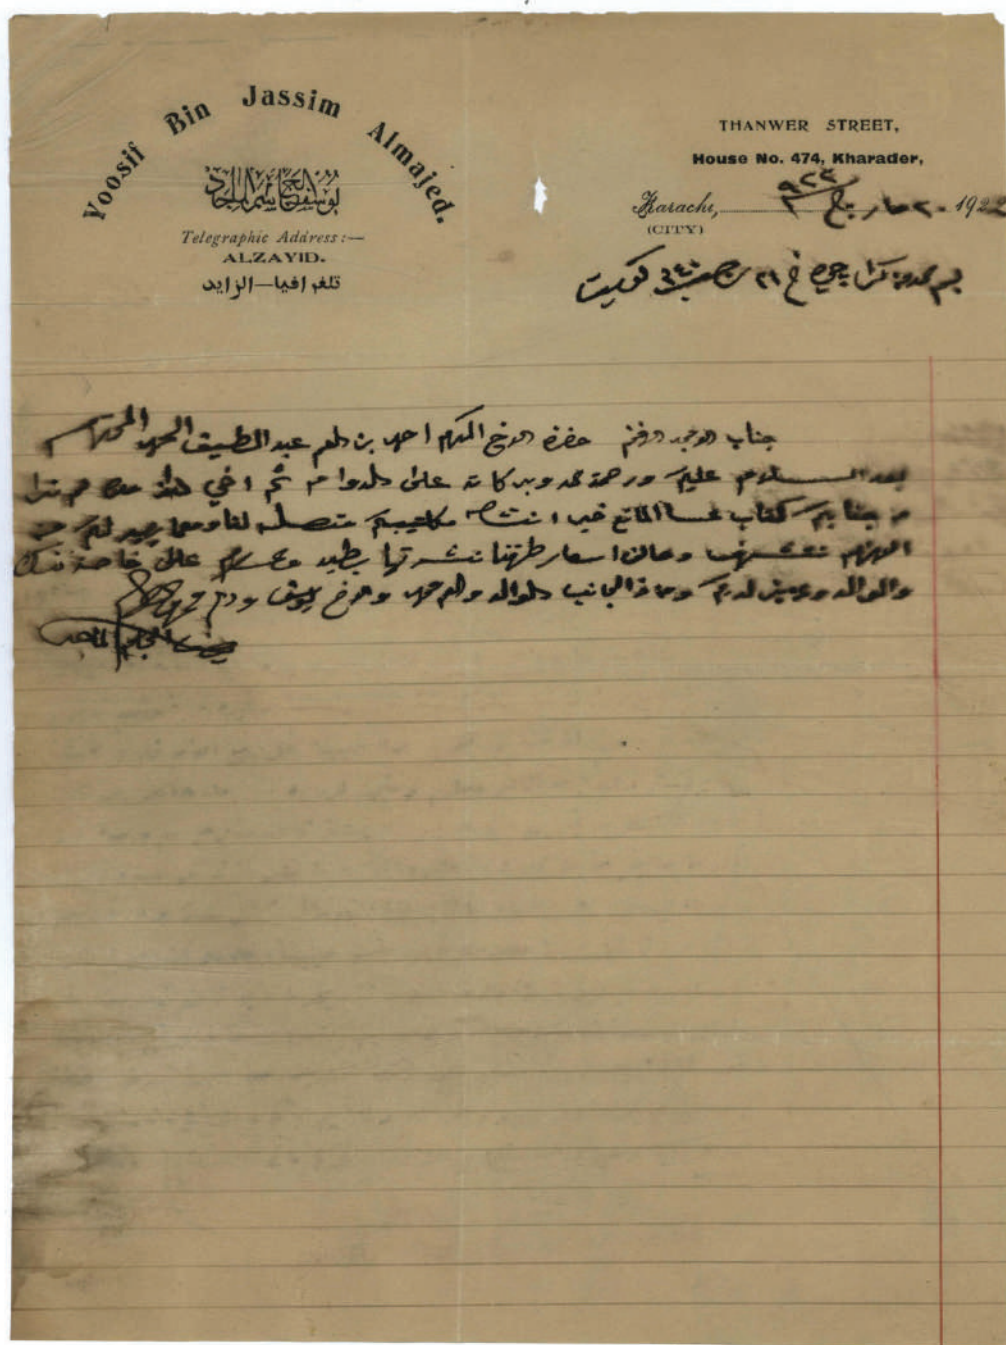 Yoosif Bin Jassim Almajed.
يوسف الجاسم الماجد
Telegraphic Address:—
ALZAYID.
تلغرافيا—الزايد
THANWER STREET,
House No. 474, Kharader,
Karachi, ٢٠ مارچ ٩٢٢ 192
(CITY)
كراچي في ٢١ رجب ٣٤٠ كويت
جناب الاجل الافخم حضرة الاخ المكرم احمد بن العم عبد اللطيف الحمد المحترم
بعد السلام عليكم ورحمة الله وبركاته على الدوام ثم اخي
من جنابكم كتاب عسا المانع خير انشاء مكاتيبكم متصله لنا ومهما يبدو لكم من
اللازم نتشرف وهاذي اسعار طرفنا نشرتها بطيه وسلام على خاصة نفسك
والوالد وعزيز لديكم ومن الجانب الوالد والعم محمد والاخ يوسف ودم
يوسف الجاسم الماجد